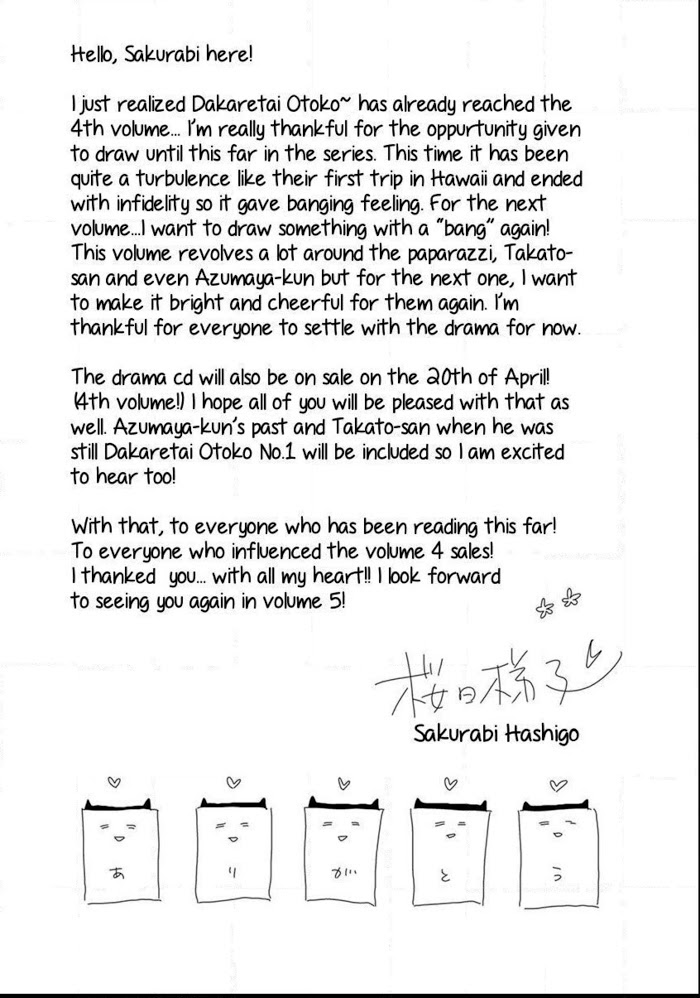 Hello, Sakurabi here!
I just realized Dakaretai Otoko~ has already reached the
4th volume... I'm really thankful for the oppurtunity given
to draw until this far in the series. This time it has been
quite a turbulence like their first trip in Hawaii and ended
with infidelity so it gave banging feeling. For the next
volume...I want to draw something with a "bang" again!
This volume revolves a lot around the paparazzi, Takato-
san and even Azumaya-kun but for the next one, I want
to make it bright and cheerful for them again. I'm
thankful for everyone to settle with the drama for now.
The drama cd will also be on sale on the 20th of April!
(4th volume!) I hope all of you will be pleased with that as
well. Azumaya-kun's past and Takato-san when he was
still Dakaretai Otoko No.1 will be included so I am excited
to hear too!
With that, to everyone who has been reading this far!
To everyone who influenced the volume 4 sales!
I thanked you... with all my heart!! I look forward
to seeing you again in volume 5!
桜日梯子
Sakurabi Hashigo
あ り が と う